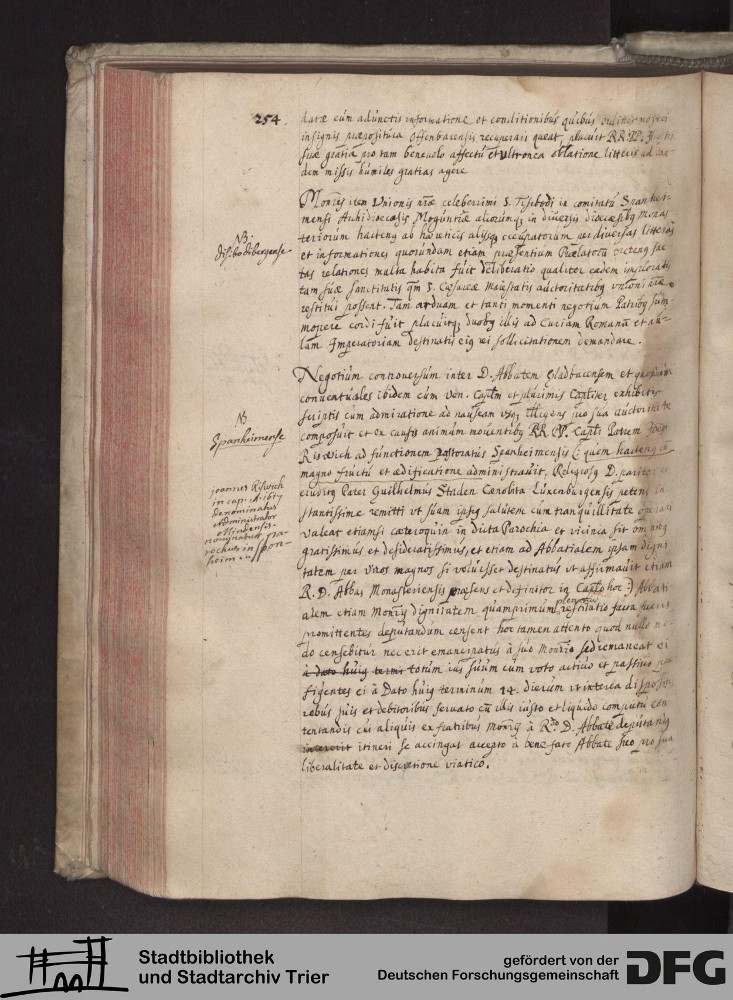 254.
datæ cum adiunctis informatione et conditionibus quibus
insignis præpositura Offenbacensis recuperari queat, placuit RR. PP.
suæ gratiæ pro tam benevolo affectu et ultronea oblatione litteris ad
dem missis humiles gratias agere
NB.
disibodibergense
Monrij item Unionis nræ celeberrimi S. Disibodi in comitatu Spanhei-
mensi Archidioecesis Moguntiæ aliorumq; in diversis dioecesibq monas
teriorum hacteng ab hæreticis alijsq occupatorum per diversas litteras
et informationes quorundam etiam præsentium Prælatorum hacteng fac
tas relationes multa habita fuit deliberatio qualiter eadem imploratis
tam suæ sanctitatis qm S. Cæsareæ Maiestatis auctoritatibq unioni nræ
restitui possent. Tam arduum et tanti momenti negotium Patribq sum
mopere cordi fuit placuitq duobq illis ad Curiam Romanā et au-
lam Imperatoriam destinatis eiq rei sollicitationem demandare.
NB
Spanheimense
Negotium controversum inter D. Abbatem Gladbacensem et quosdam
conventuales ibidem cum Ven. Captm et plurimis Captver exhibitis
scriptis cum admiratione ad nauseam usq; illegens suo sua auctoritate
composuit et ex causis animum moventibq RR. PP. Captli Patrem Joēs
Riswich ad functionem Pastoratus Spanheimensis (: quem hacteng
magno fructu et ædificatione administravit, Religiosq D. pariter
eiusdq Pater Guilhelmus Staden Cenobita Luxenburgensis petens in
stantissime remitti ut suam ipsiq salutem cum tranquillitate
valeat etiamsi cæteroquin in dicta Parochia et vicinia sit omnibq
gratissimus et desideratissimus, et etiam ad Abbatialem ipsam digni
tatem per viros magnos si voluisset destinatus ut affirmavit etiam
R. D. Abbas Monasteriensis præsens et definitor in Captlo hoc :) Abbati
alem etiam Monrij dignitatem quamprimum plenaria restitutio facta fuerit
promittentes deputandum censent hoc tamen attento quod nullo mo-
do censebitur nec erit emancipatus à suo Monrio sed remaneat ei
à dato huiq termi totum ius suum cum voto activo et passivo
figentes ei à Dato huiq terminum 14. dierum ut interea dispositis
rebus suis et debitoribus servato cū illis iusto et liquido computu con
tentandis cui aliquis ex fratribus Monrij à Rdo D. Abbate deputandq
itineri se accingat accepto à bene fato Abbate suo pro sua
liberalitate et discretione viatico.
joannes Riswich
in cap. A. 1617
Denominatus
Administrator
Mindensis.
nominatur pa-
rochus in spon-
heim
Stadtbibliothek
und Stadtarchiv Trier
gefördert von der
Deutschen Forschungsgemeinschaft
DFG